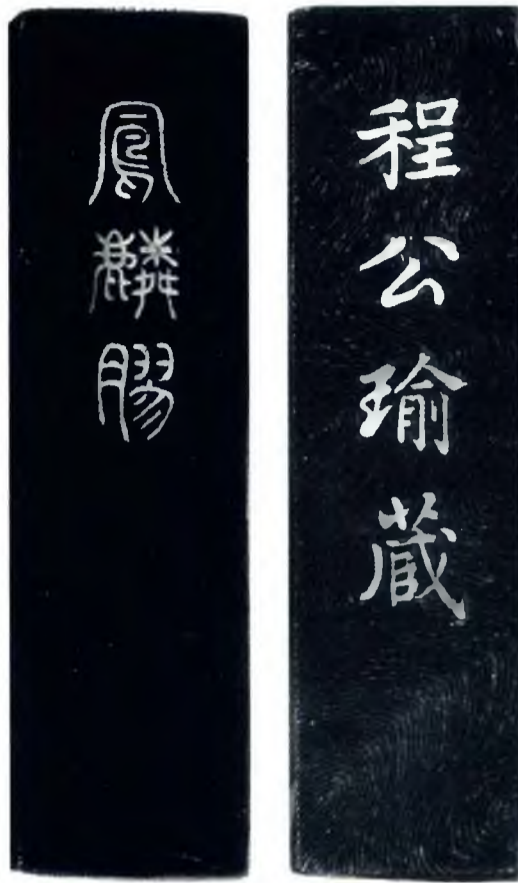 鳳麟膠
程公瑜蔵